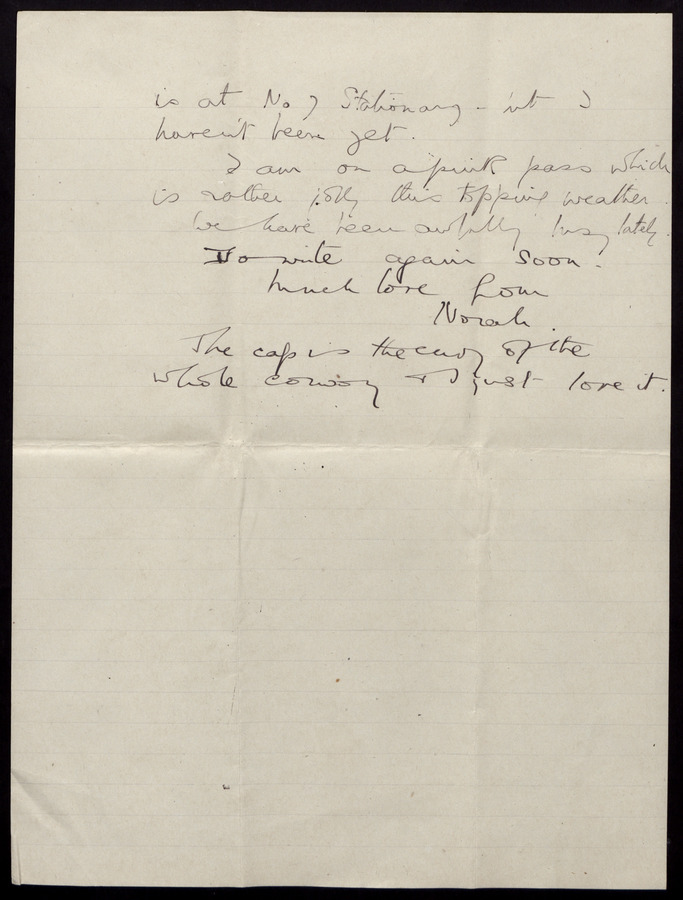 is at No 7 Stationary - but I
haven't been yet.
I am on a pink pass which
is rather jolly this topping weather.
We have been awfully busy lately.
Do write again soon.
Much love from
Norah.
The cap is the envy of the
whole convoy & I just love it.